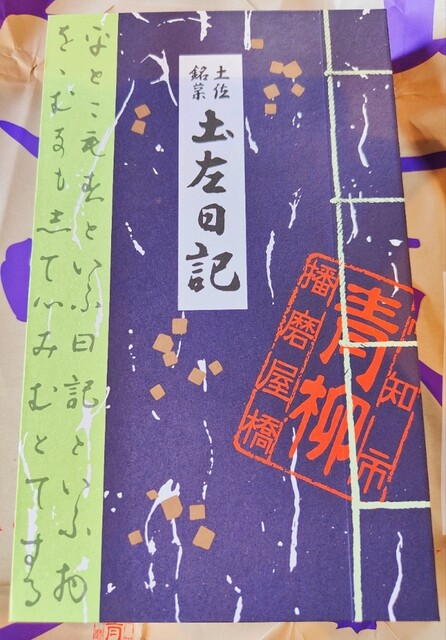 土佐
銘菓
土左日記
高知市
青柳
播磨屋橋
をとこもすといふ日記といふ物
をゝむなもしてみむとてする